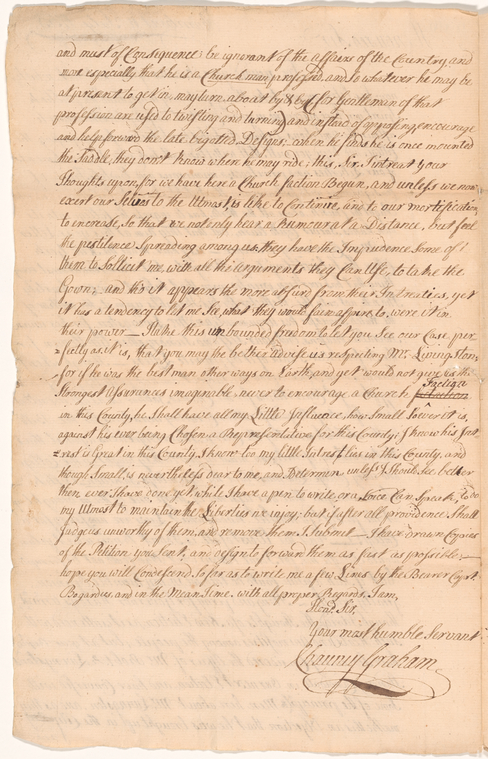 and must of Consequence be ignorant of the affairs of the Country, and
more especially that he is a Church man professed, and so whatever he may be
at present to get in, may turn about by & by, for Gentleman of that
profession are used to twisting and turning, and instead of opposing, encourage
and help forward the late bigotted Designs. when he finds he is once mounted
the Saddle, they don't know when he may ride; this, Sir, I intreat your
Thoughts upon, for we have here a Church faction Begun, and unless we now
exert our Selves to the Utmost is like to Continue, and to our mortification
to increase, So that we not only hear a Rumour at a Distance, but feel
the pestilence Spreading among us, they have the Imprudence Some of
them to Sollicit me, with all the arguments they Can Use, to take the
Gown, and tho it appears the more absurd from their Intreaties, yet
it has a tendency to let me See, what they would fain aspire to, were it in
their power — I take this unbounded freedom to let you See our Case per
=fectly as it is, that you may the better advise us respecting Mr. Livingston,
for if he was the best man other ways on Earth, and yet would not give us the
Strongest assurances imaginable, never to encourage a Church
in this County, he Shall have all my Little Influence, how Small Soever it is,
against his ever being Chosen a Representative for this County; I know his Int
=rest is Great in this County, I know too my little Interest has in this County, and
though Small, is nevertheless dear to me, and Determin, unless I Should See better
then ever I have done yet, while I have a pen to write or a Voice Can Speak, to do
my Utmost to maintain the Liberties we injoy; but if after all providence Shall
Judge us unworthy of them, and remove them, I Submit — I have drawn Copies
of the Petition you Sent, and design to forward them as fast as possible;
hope you will Condescend So far as to write me a few Lines by the Bearer Capt.
Bogardus, and in the Mean Time, with all proper Regards, I am,
Revd. Sir,
Your most humble Servant
Chauncy Graham